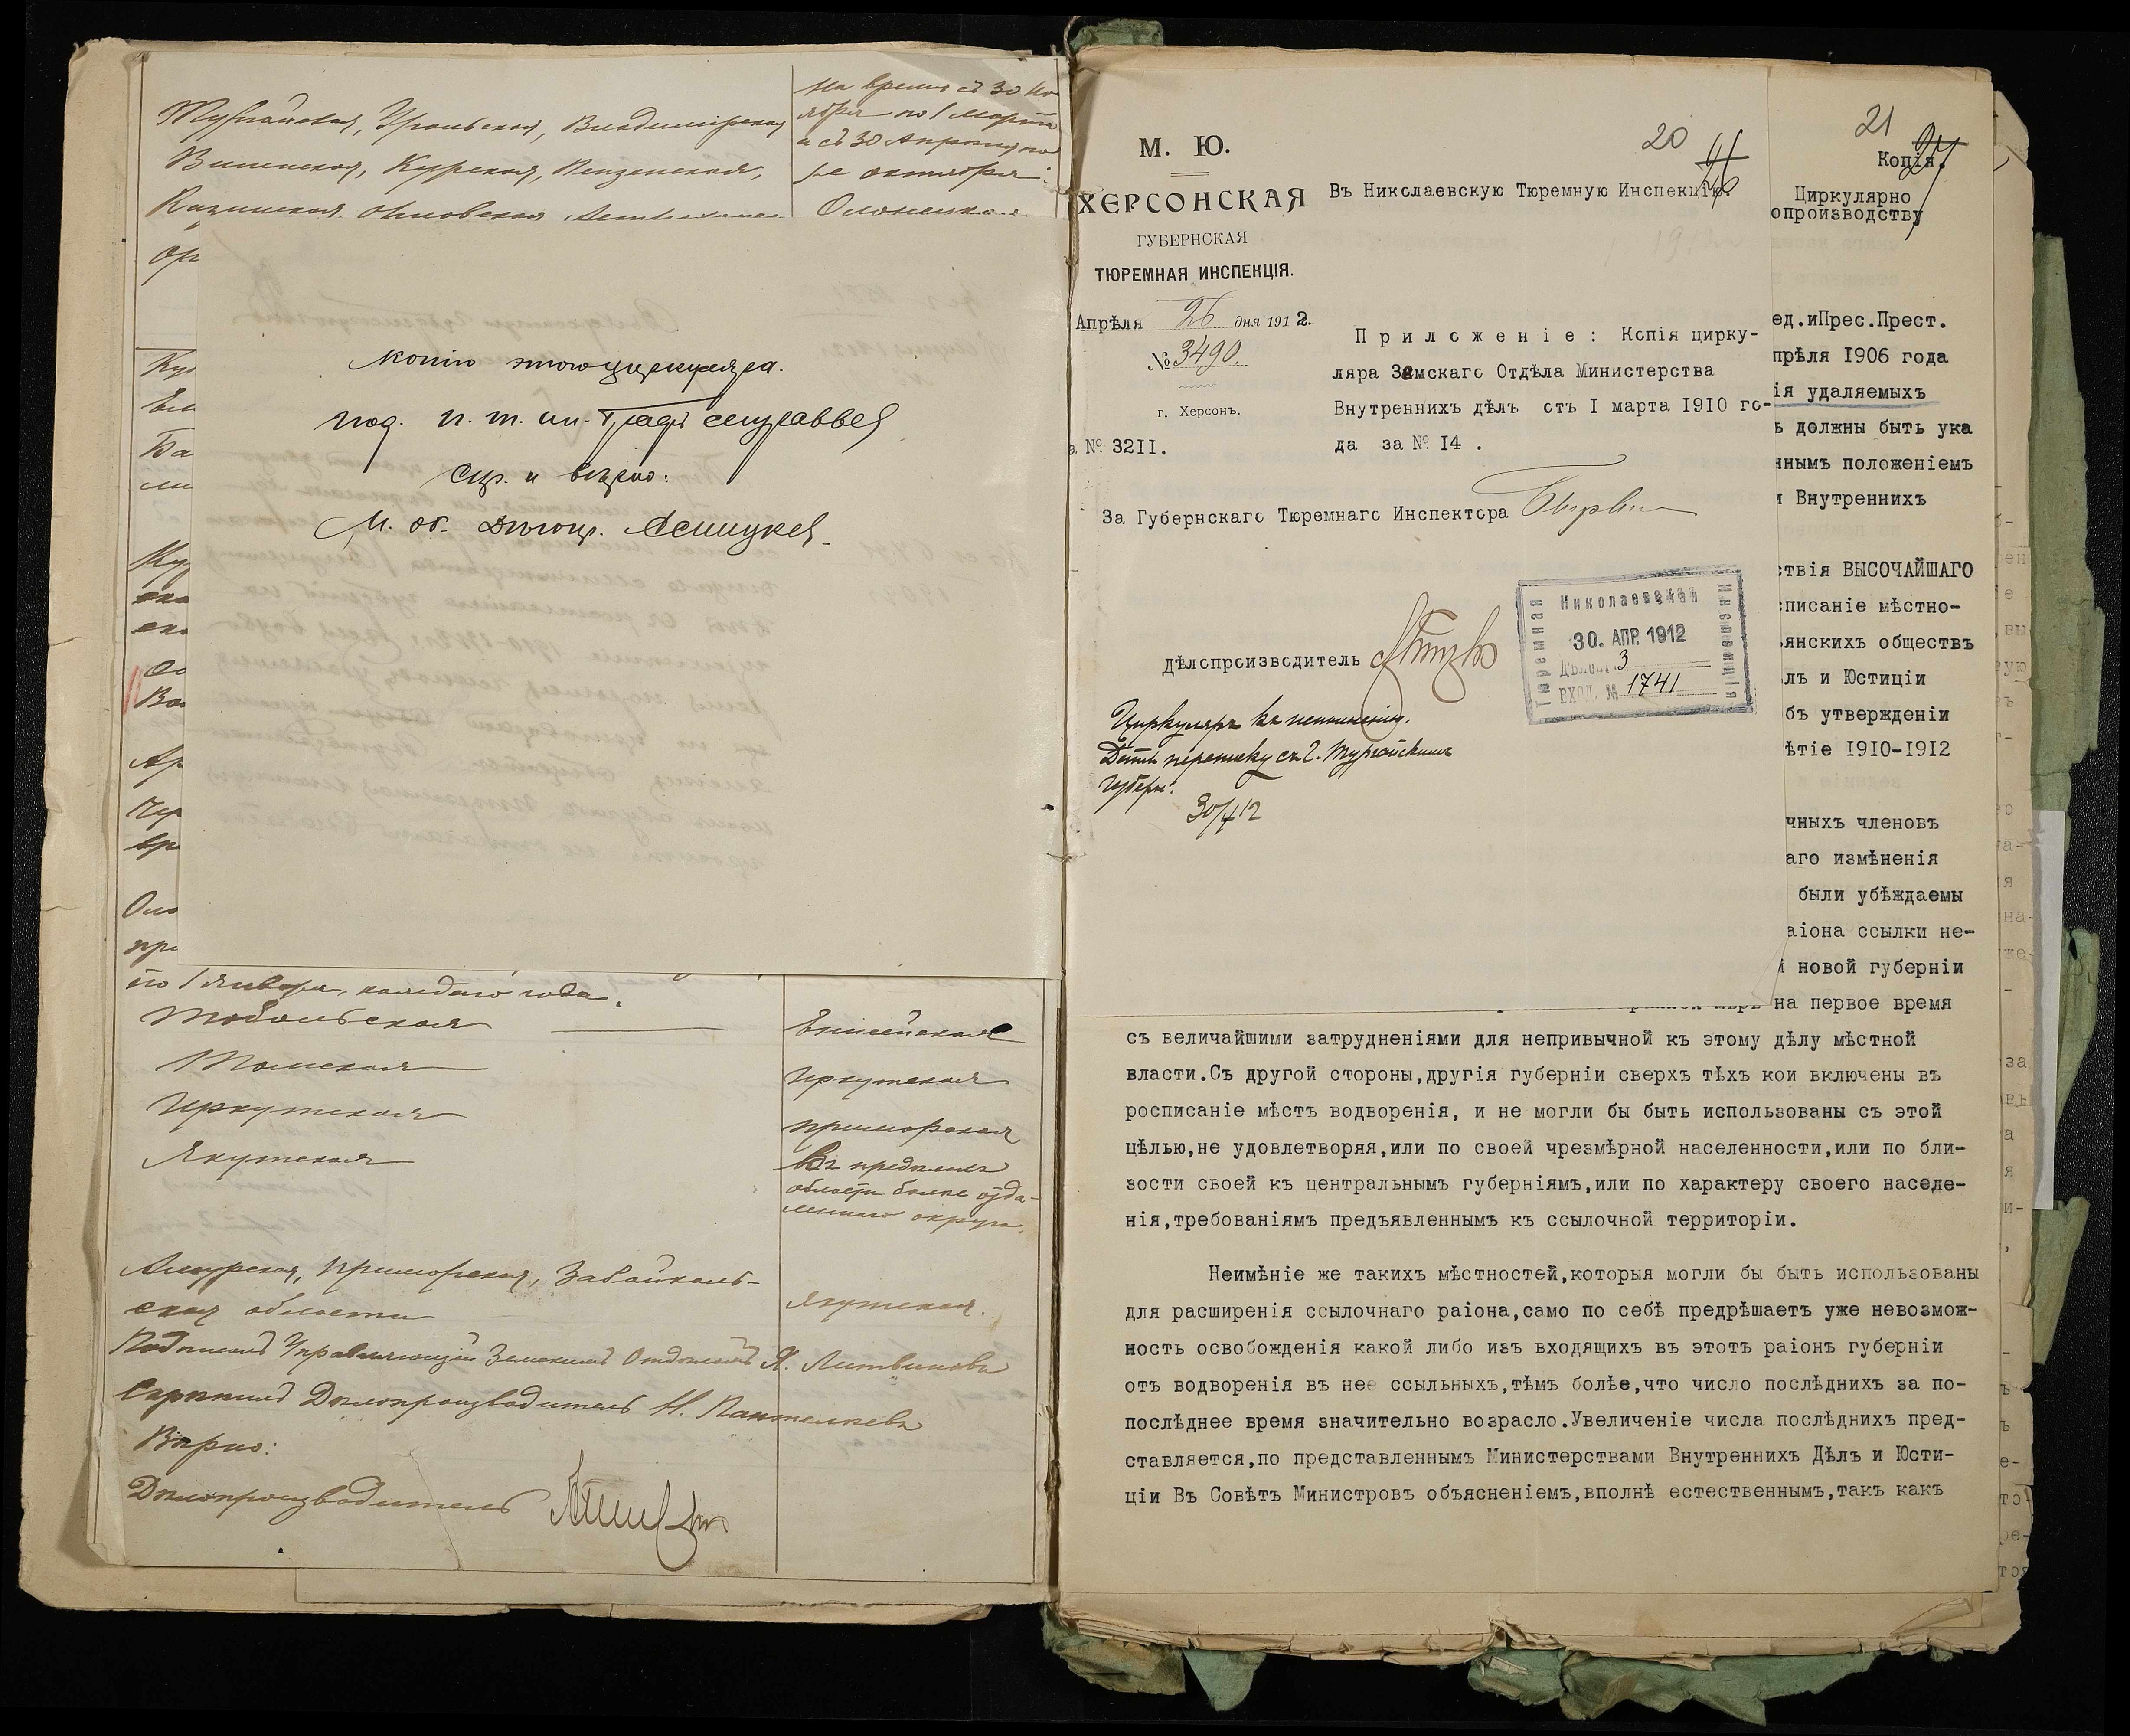 на время съ 30 но
ября по 1 Марта
и съ 30 Апреля по
Тургайская, Уральская, Владимірская
Виленская, Курская, Пензенская,
Казанская
Олонецкая
ор
копію этого циркуляра.
под.
и вѣрно:
Ба
Ва
Ар
Оло
при
по 1 Января, каждаго года.
Тобольская
Енисейская
Томская
Иркутская
Иркутская
Приморская
Якутская
Въ предѣлахъ
области болѣе отда-
леннаго округа.
Амурская, Приморская, Забайкаль-
ская области
Якутская.
Подписалъ Управляющій Земскимъ Отдѣломъ Я. Литвиновъ
Скрѣпилъ Дѣлопроизводитель Н. Пантелѣевъ
Вѣрно:
Дѣлопроизводитель
М. Ю.
ХЕРСОНСКАЯ
ГУБЕРНСКАЯ
ТЮРЕМНАЯ ИНСПЕКЦІЯ.
Апрѣля 26 дня 1912.
№ 3490.
г. Херсонъ.
№ 32II.
20
Въ Николаевскую Тюремную Инспекцію.
Приложеніе: Копія цирку-
ляра Земскаго Отдѣла Министерства
Внутреннихъ дѣлъ отъ I марта I9I0 го-
да за № I4 .
За Губернскаго Тюремнаго Инспектора
Дѣлопроизводитель
Николаевская
Тюремная
Инспекція
30. АПР. 1912
Дѣлопр. 3
ВХОД. № 1741
Циркуляръ къ исполненію.
Дать переписку съ Г. Тургайскимъ
Губерн.
30/4 12
21
Копія.
Циркулярно
опроизводству
ед.иПрес.Прест.
прѣля I906 года
ія удаляемыхъ
ъ должны быть ука
ннымъ положеніемъ
и Внутреннихъ
ствія ВЫСОЧАЙШАГО
списаніе мѣстно-
ьянскихъ обществъ
лъ и Юстиціи
бъ утвержденіи
ѣтіе I9I0-I9I2
чныхъ членовъ
аго измѣненія
были убѣждаемы
аіона ссылки не-
й новой губерніи
на первое время
съ величайшими затрудненіями для непривычной къ этому дѣлу мѣстной
власти.Съ другой стороны,другія губерніи сверхъ тѣхъ кои включены въ
росписаніе мѣстъ водворенія, и не могли бы быть использованы съ этой
цѣлью,не удовлетворяя,или по своей чрезмѣрной населенности,или по бли-
зости своей къ центральнымъ губерніямъ,или по характеру своего населе-
нія,требованіямъ предъявленнымъ къ ссылочной территоріи.
Неимѣніе же такихъ мѣстностей,которыя могли бы быть использованы
для расширенія ссылочнаго раіона,само по себѣ предрѣшаетъ уже невозмож-
ность освобожденія какой либо изъ входящихъ въ этотъ раіонъ губерніи
отъ водворенія въ нее ссыльныхъ,тѣмъ болѣе,что число послѣднихъ за по-
послѣднее время значительно возрасло.Увеличеніе числа послѣднихъ пред-
ставляется,по представленнымъ Министерствами Внутреннихъ Дѣлъ и Юсти-
ціи Въ Совѣтъ Министровъ объясненіемъ,вполнѣ естественнымъ,такъ какъ